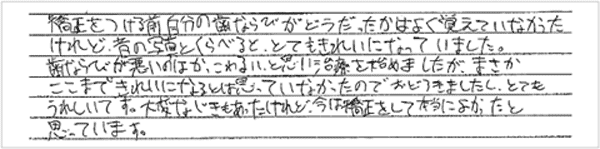 矯正をつける前自分の歯ならびがどうだったかはよく覚えていなかった
けれど、昔の写真とくらべると、とてもきれいになっていました。
歯ならびが悪いのはかっこわるいと思い治療を始めましたが、まさか
ここまできれいになるとは思っていなかったのでおどろきましたし、とても
うれしいです。大変なじきもあったけれど、今は矯正をして本当によかったと
思っています。